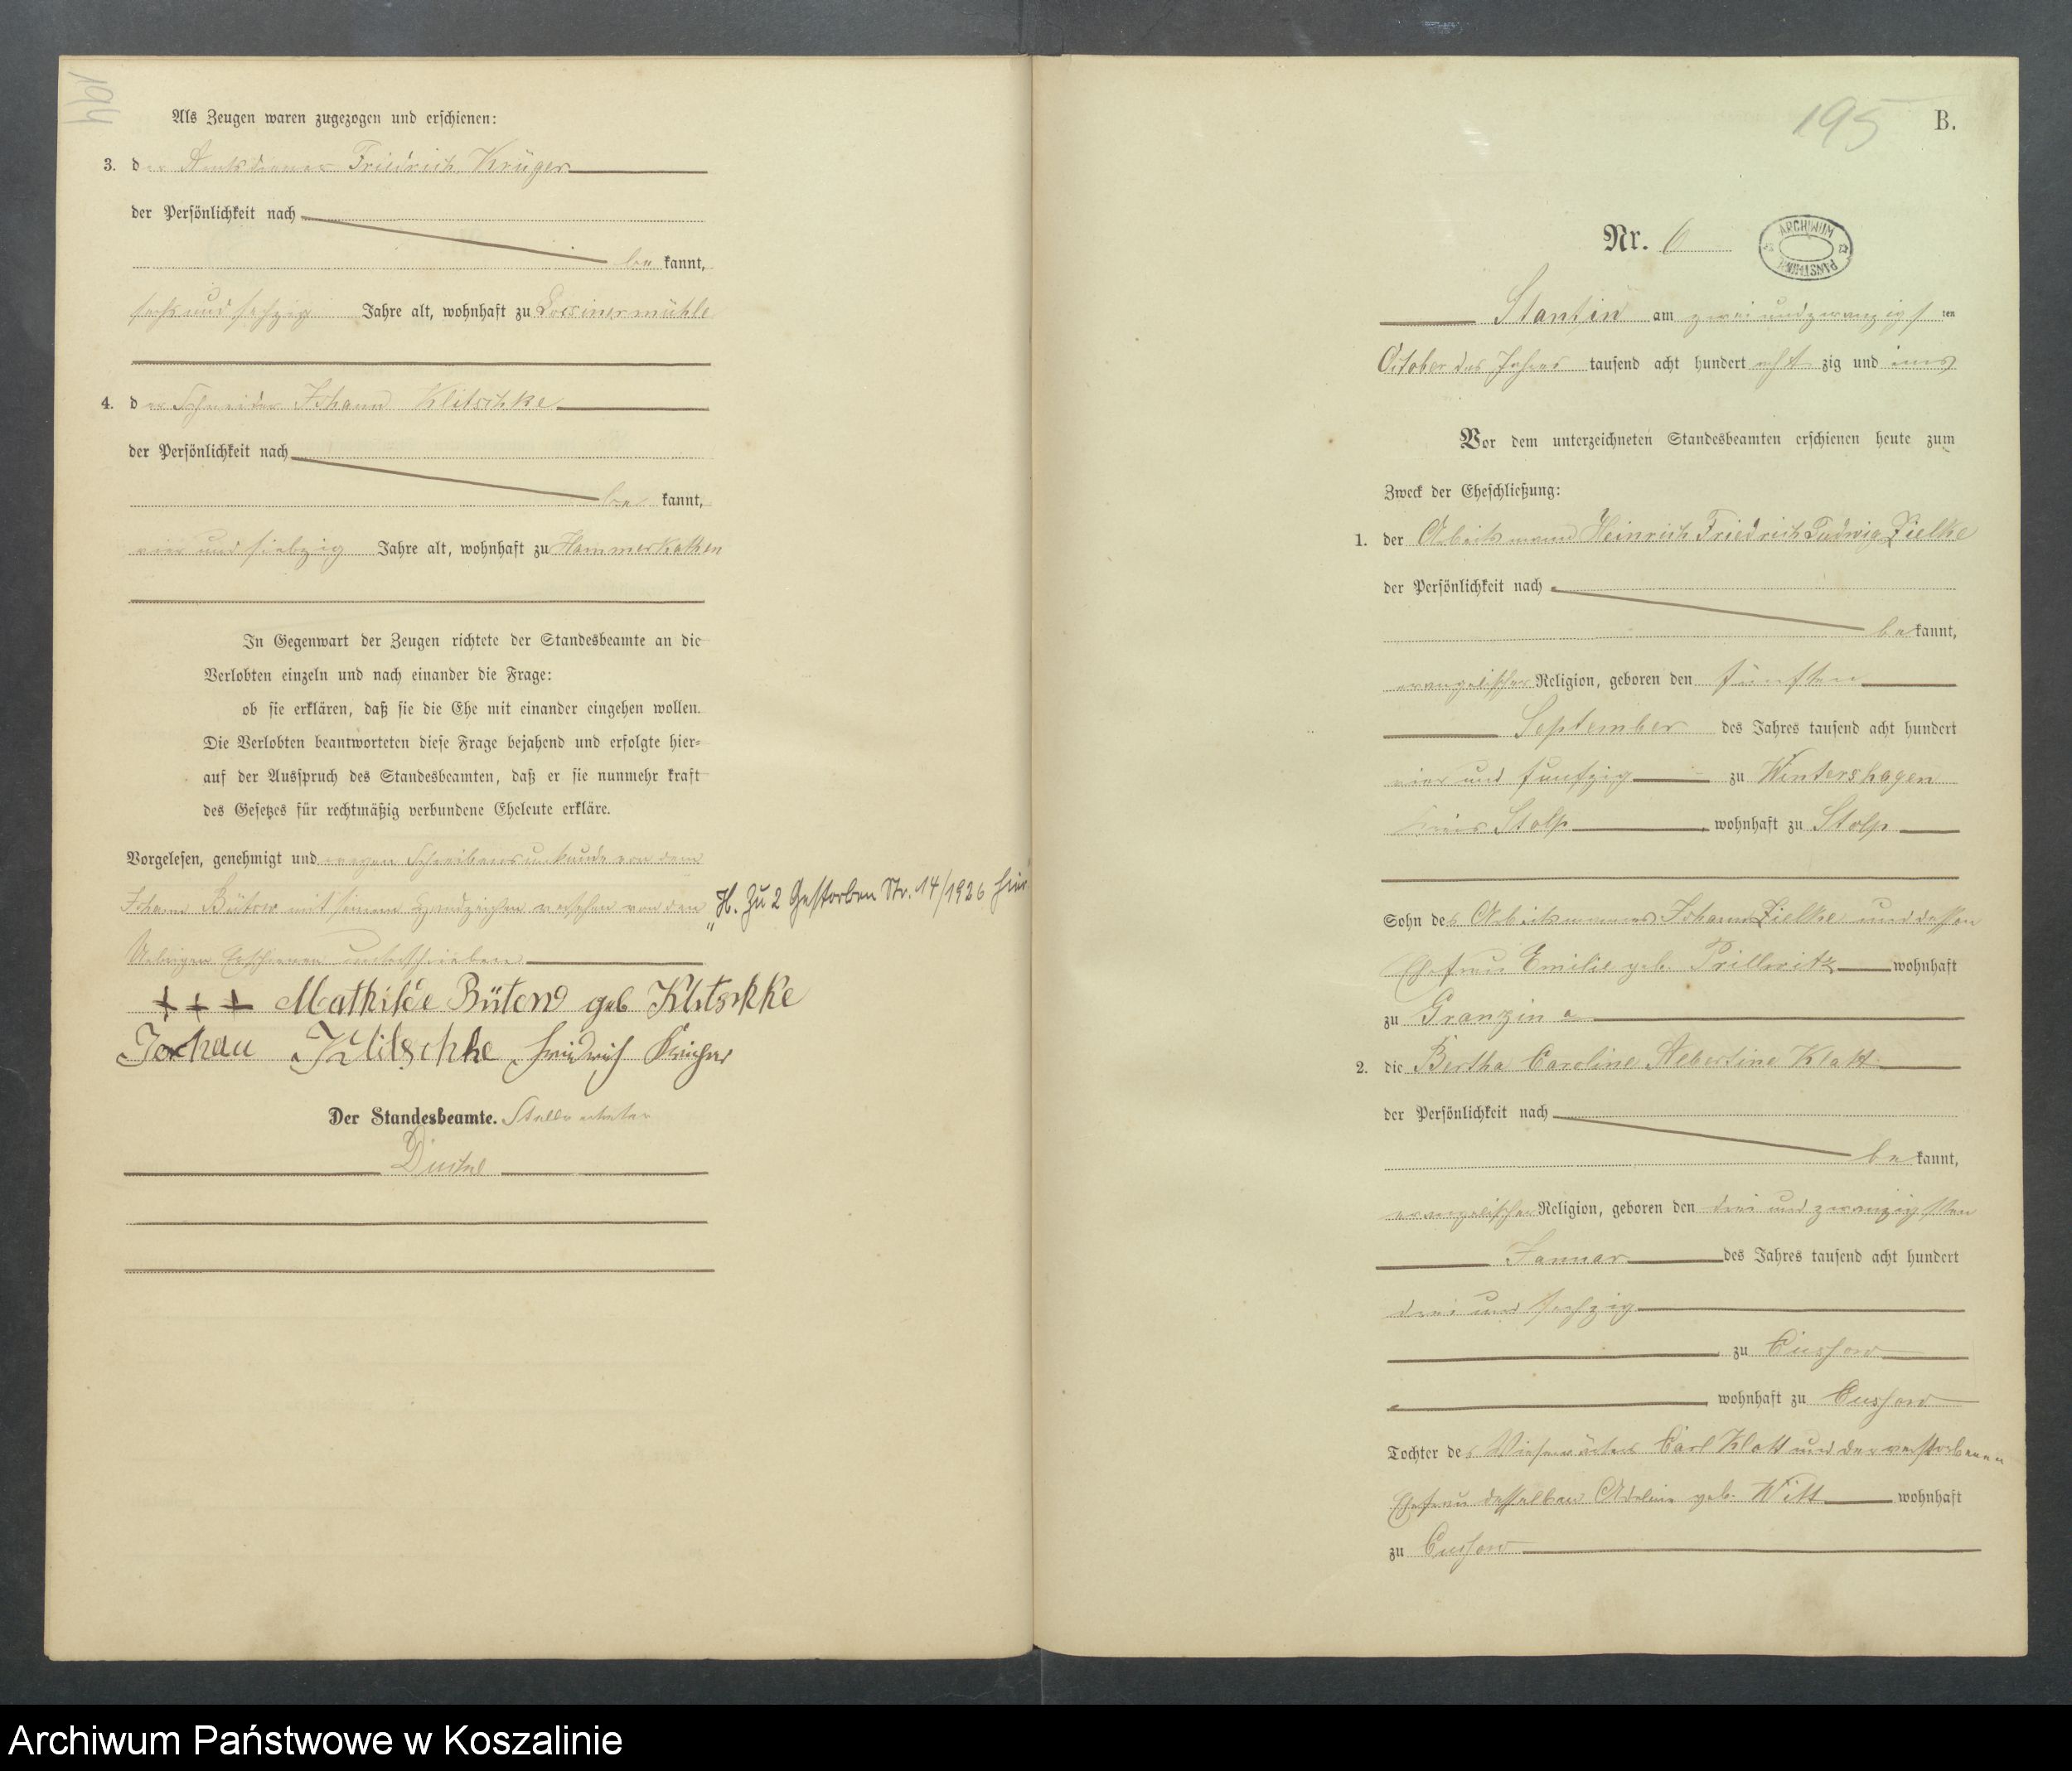 194
Als Zeugen waren zugezogen und erschienen:
3. der Amtsdiener Friedrich Krüger
der Persönlichkeit nach
be kannt,
sechs und sechzig Jahre alt, wohnhaft zu Lossinermühle
4. der Schneider Johann Klitschke
der Persönlichkeit nach
be kannt,
vier und siebzig Jahre alt, wohnhaft zu Hammerkathen
In Gegenwart der Zeugen richtete der Standesbeamte an die
Verlobten einzeln und nach einander die Frage:
ob sie erklären, daß sie die Ehe mit einander eingehen wollen.
Die Verlobten beantworteten diese Frage bejahend und erfolgte hier-
auf der Ausspruch des Standesbeamten, daß er sie nunmehr kraft
des Gesetzes für rechtmäßig verbundene Eheleute erkläre.
Vorgelesen, genehmigt und wegen Schreibensunkunde von dem
Johann Bütow mit seinem Handzeichen versehen von den
Uebrigen Erschienen unterschrieben
"H. Zu 2 Gestorben Nr. 14/1926 hier"
+++ Mathilde Büton geb Klitschke
Johau Klitschke Friedrich Krüger
Der Standesbeamte. Stellvertreter
195
B.
Nr. 6
ARCHIWUM PAŃSTWOWE
Stantin am zwei und zwanzigsten
October des Jahres tausend acht hundert acht zig und eins
Vor dem unterzeichneten Standesbeamten erschienen heute zum
Zweck der Eheschließung:
1. der Arbeitsmann Heinrich Friedrich Ludwig Zielke
der Persönlichkeit nach
be kannt,
evangelischer Religion, geboren den fünften
September des Jahres tausend acht hundert
vier und funfzig zu Wintershagen
Kreis Stolp, wohnhaft zu Stolp
Sohn des Arbeitsmannes Johann Zielke und dessen
Ehefrau Emilie geb. Prillwitz wohnhaft
zu Granzin
2. die Bertha Caroline Albertine Klatt
der Persönlichkeit nach
be kannt,
evangelischer Religion, geboren den drei und zwanzigsten
Januar des Jahres tausend acht hundert
drei und sechzig
zu Cussow
, wohnhaft zu Cussow
Tochter des Wiesenwärters Carl Klatt und der verstorbenen
Ehefrau desselben Adeline geb. Witt wohnhaft
zu Cussow
Archiwum Państwowe w Koszalinie